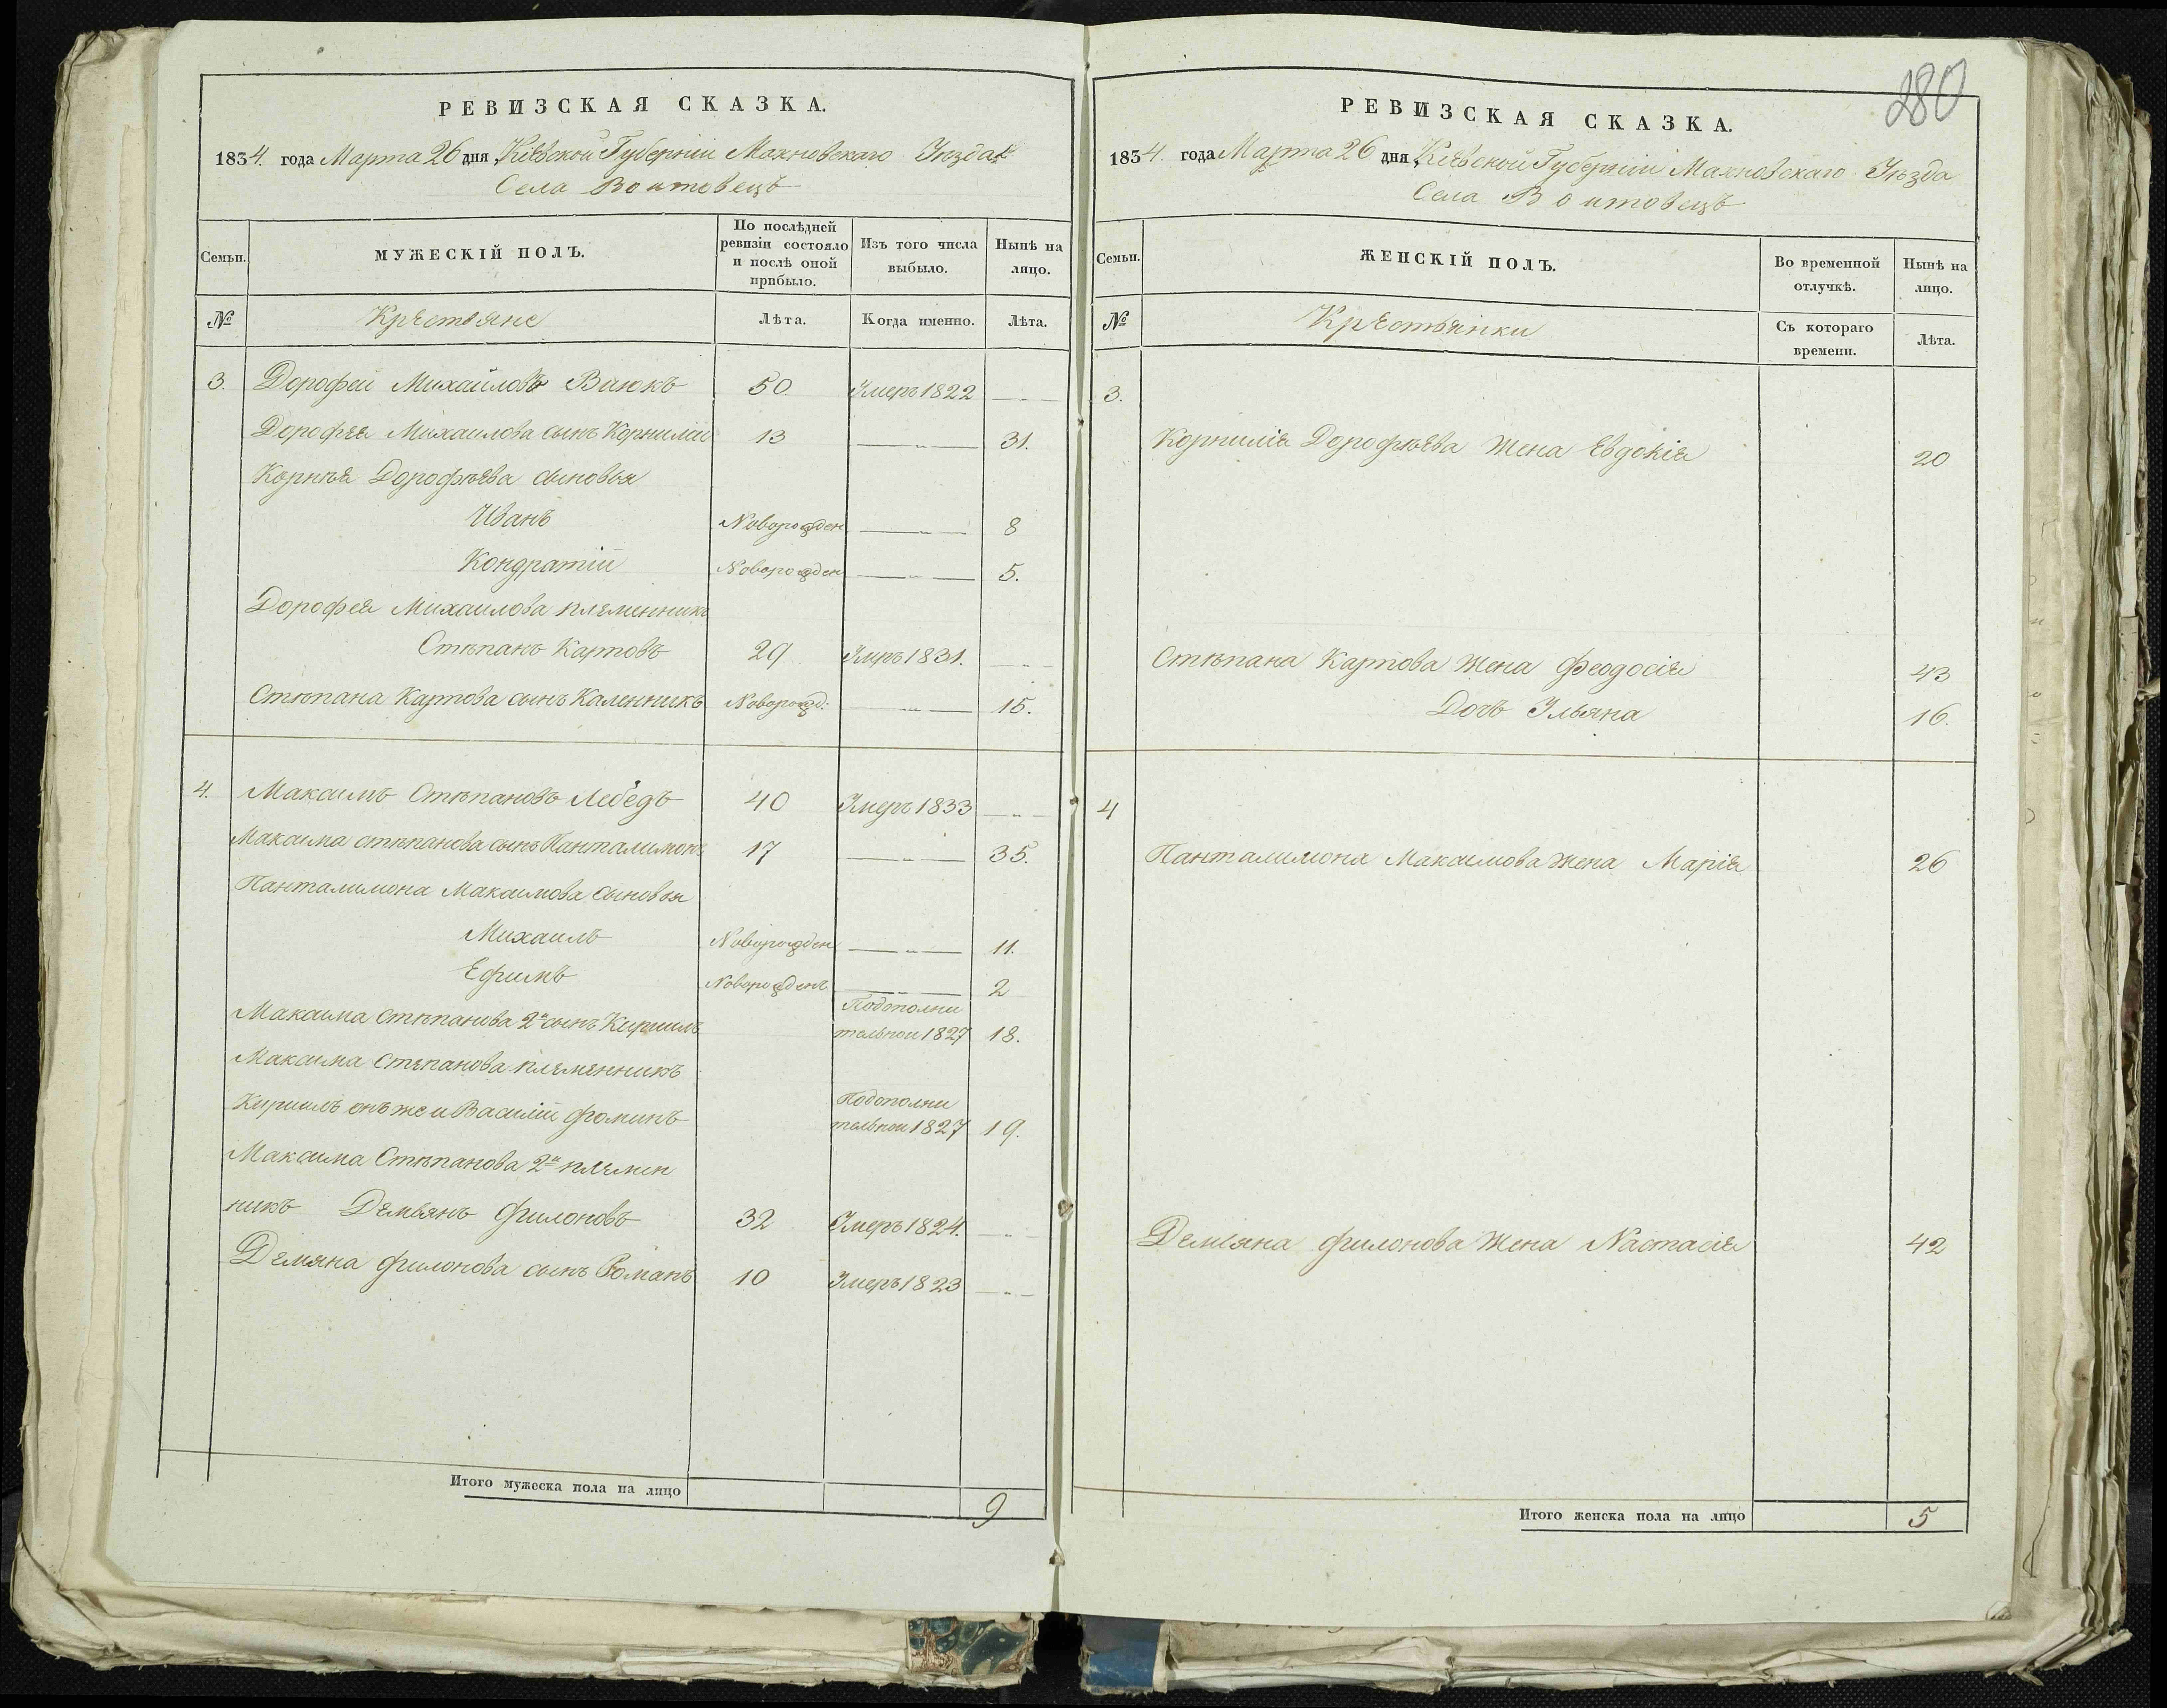 280
РЕВИЗСКАЯ СКАЗКА.
1834. года Марта 26 дня, Кіевской Губерніи Махновскаго Уѣзда
Села Воитовецъ
Семьи. МУЖЕСКІЙ ПОЛЪ. По послѣдней ревизіи состояло и послѣ оной прибыло. Изъ того числа выбыло. Нынѣ на лицо.
№ Крестьяне Лѣта. Когда именно. Лѣта.
3. Дорофей Михайловъ 50. Умеръ 1822
Дорофея Михаилова сынъ Корнилій 13 31.
Корнѣя Дорофѣева сыновья
Иванъ Новорожден 8
Кондратій Новорожден 5.
Дорофея Михаилова племенникъ
Стѣпанъ Карповъ 29 Умръ 1831.
Стѣпана Карпова сынъ Каленникъ Новорожд: 15.
4. Максимъ Стѣпановъ Лебедь 40 Умеръ 1833
Максима Стѣпанова сынъ Панталимонъ 17 35.
Панталимона Максимова сыновья
Михаилъ Новорожден 11.
Ефимъ Новорожденъ 2
Максима Стѣпанова 2й сынъ Кирилъ Подополни
тельной 1827 18.
Максима Стѣпанова племенникъ
Кирилъ онъ же и Василій Фоминъ Подополни
тельной 1827 19.
Максима Стѣпанова 2й племен
никъ Демьянъ Филоновъ 32 Умеръ 1824.
Демяна Филонова сынъ Романъ 10 Умеръ 1823
Итого мужеска пола на лицо 9
РЕВИЗСКАЯ СКАЗКА.
1834. года Марта 26 дня, Кіевской Губерніи Махновскаго Уѣзда
Села Воитовецъ
Семьи. ЖЕНСКІЙ ПОЛЪ. Во временной отлучкѣ. Нынѣ на лицо.
№ Крестьянки Съ котораго времени. Лѣта.
3.
Корнилія Дорофѣева жена Евдокія 20
Стѣпана Карпова жена Феодосія 43
Дочь Ульяна 16.
4
Панталимона Максимова жена Марія 26
Демьяна Филонова жена Настасія 42
Итого женска пола на лицо 5